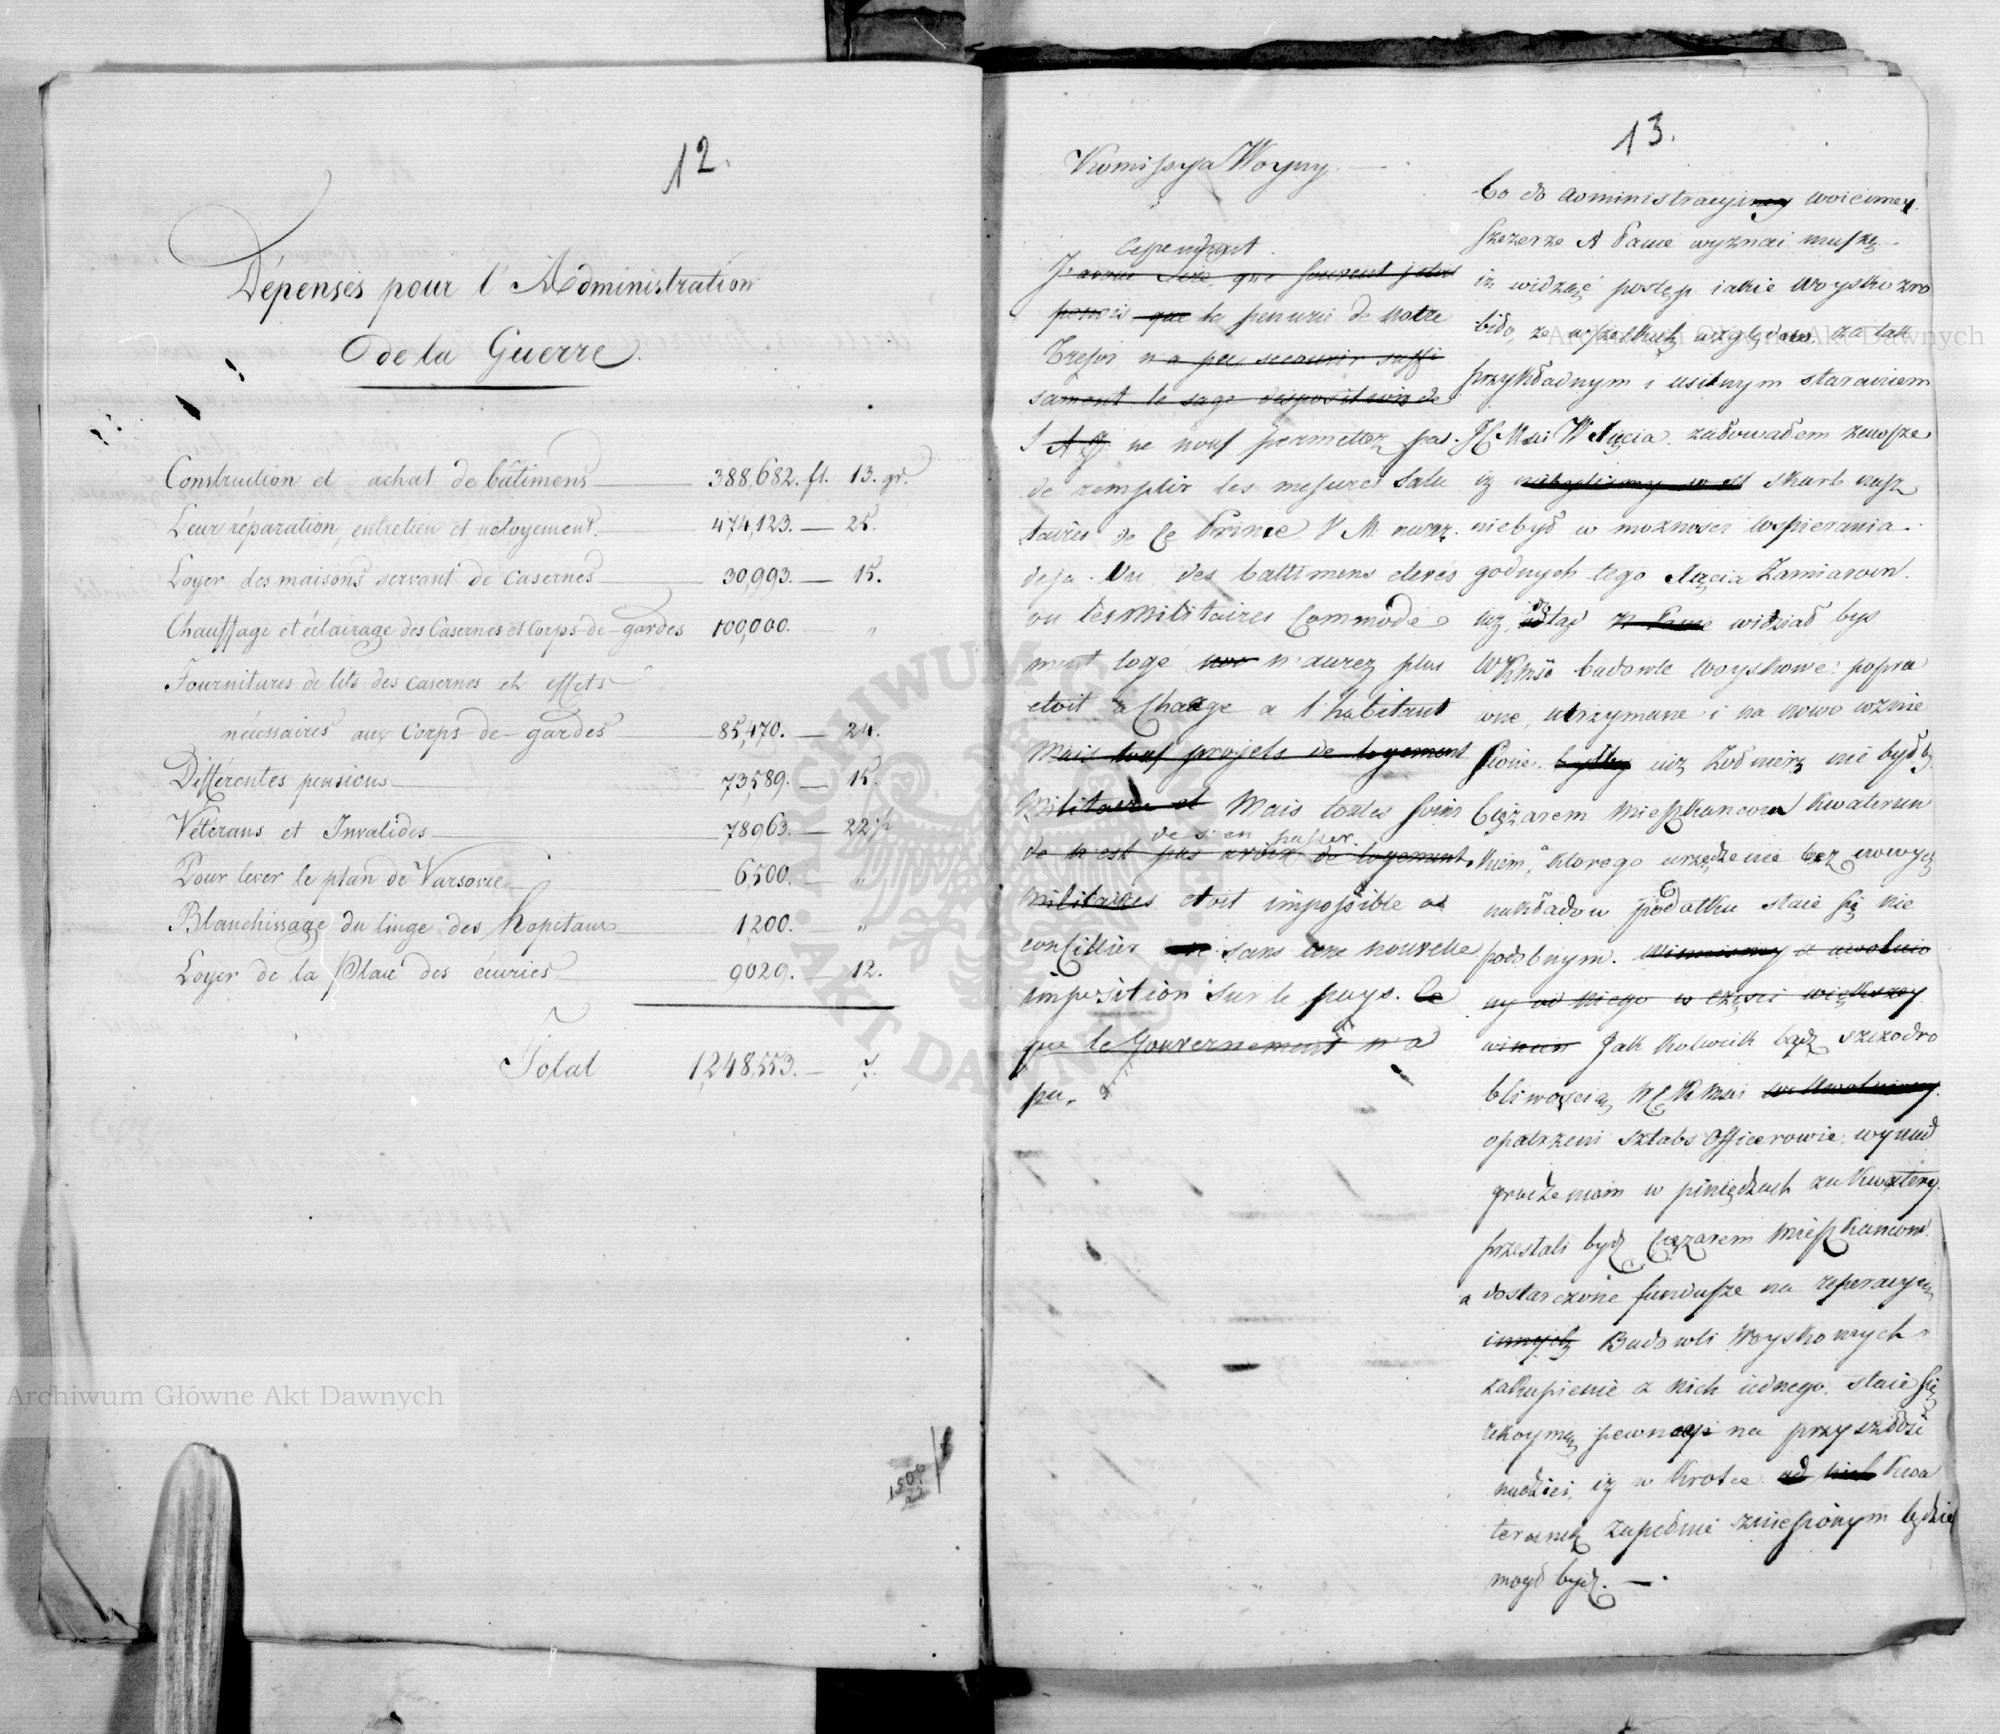 12.
Dépenses pour l'Administration
de la Guerre.
Construction et achat de bâtimens 388,682. fl. 13. gr.
Leur réparation, entretien et netoyement. 474,123. — 25.
Loyer des maisons servant de Casernes 30,993. — 15.
Chauffage et éclairage des Casernes et Corps-de-gardes 100,000. "
Fournitures de lits des casernes et effets
nécessaires aux Corps-de-gardes 85,470. — 24.
Différentes pensions 73,589. — 15.
Vétérans et Invalides 78,963. — 22
Pour lever le plan de Varsovie 6,500. — "
Blanchissage du linge des hopitaux 1,200. — "
Loyer de la Place des écuries 9029. — 12.
Total 1,248,553. — 7.
13.
Komissya Woyny.
Cependant
J'avoue Sire, que souvent j'etois
que la penurie de notre
Tresor n a peu secourir suffi
sament le sage disposition de
S A J. ne nous permettez pas
de remplir les mesures Salu
taires de Ce Prince V M. aurez
deja. Vu des battimens eleves
ou les Militaires Commode
ment logé n'aurez plus
etoit a Charge a l'habitant
Mais tous projets de logement
Militaire et Mais toutes
de s'en passer
de n'est pas de logement
militaires etoit impossible a
sans une nouvelle
imposition sur le pays. Ce
que le Gouvernement n'a
pu.
Co do administracyiney woienney
szczerze N Panie wyznać muszę
iż widząc postęp iakie woysko zro
biło, ze wszelkich względow za tak
przykładnym i usilnym staraniem
JC Mci W Xięcia. żałowałem zawsze
iż skarb nasz
niebył w możnosci wspierania
godnych tego Xięcia Zamiarow.
iuż dotąd N Panie widział bys
WKMść budowle woyskowe: popra
wne, utrzymane i na nowo wznie
sione. byłby iuż Żołnierz nie był
Ciężarem Mieszkancom Kwaterun
kiem, którego urządzenie bez nowych
nakładow podatku staie się nie
podobnym.
ny od niego w części większey
Jak kolwiek bądź szczodro
bliwością WCKMści
opatrzeni sztabs Officerowie: wynad
grodzeniem w pieniędzach za kwaterę.
przestali bydź Ciężarem Mieszkancow
a dostarczone fundusze na reperacyią
innych Budowli Woyskowych
zakupienie z nich iednego. staie się
rękoymią pewney na przyszłość
nadziei, iż w krotce od nich Kwa
terunek zupełnie zniesionym będzie
mogł bydź. —
Archiwum Główne Akt Dawnych
Archiwum Główne Akt Dawnych
ARCHIWUM GŁÓWNE
AKT DAWNYCH